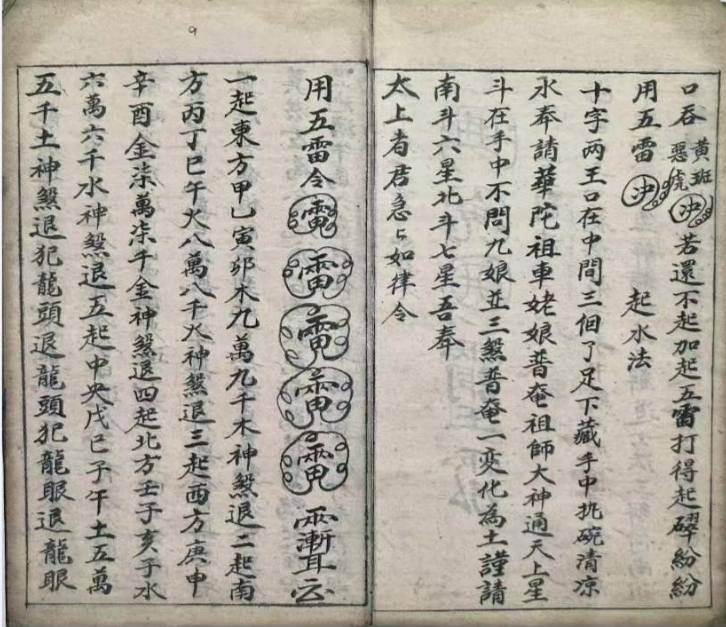 口吞黄斑惡虎沖若還不起加起五雷打得起碎紛紛
用五雷沖 起水法
十字两王口在中間三個了足下藏手中扎碗清凉
水奉請華陀祖車姥娘普奄祖師大神通天上星
斗在手中不問九娘並三煞普奄一变化為土謹請
南斗六星北斗七星吾奉
太上老君急々如律令
用五雷令 雷 電 雷漸耳云
一起東方甲乙寅卯木九萬九千木神煞退二起南
方丙丁巳午火八萬八千火神煞退三起西方庚申
辛酉金柒萬柒千金神煞退四起北方壬子亥子水
六萬六千水神煞退五起中央戊巳子午土五萬
五千土神煞退犯龍頭退龍頭犯龍眼退龍眼
9